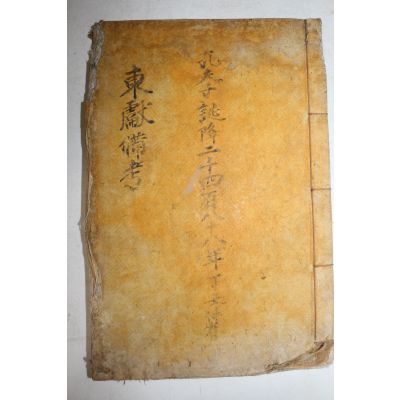 孔夫子誕降二千四百八十八年丁丑
東獻備考